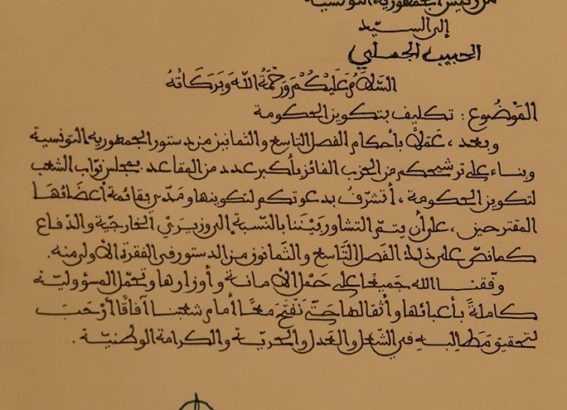 من رئيس الجمهورية التونسية
إلى السيّد
الحبيب الجملي
السّلامُ عَلَيْكُمْ وَرَحْمَةُ اللهِ وَبَرَكَاتُهُ
المَوْضُوع : تكليف بتكوين الحكومة
وبعد ، عَمَلًا بأحكام الفصل التاسع والثمانين من دستور الجمهورية التونسية
وبناء على ترشيحكم من الحزب الفائز بأكبر عدد من المقاعد بمجلس نواب الشعب
لتكوين الحكومة ، أتشرّف بدعوتكم لتكوينها ومَدّي بقائمة أعضائها
المقترحين ، على أن يتمّ التشاور بَيْننا بالنّسبة إلى وزيريْ الخارجيّة والدّفاع
كما نصّ على ذلك الفصل التّاسع والثّمانون من الدّستور في الفقرة الأولى منه.
وفّقنا الله جَميعًا على حَمْل الأمانة وأوزارها وتحمّل المسؤوليّة
كاملةً بأعبائها وأثقالها حَتّى نَفْتَحَ معًا أمام شعبنا آفاقًا أرْحَبَ
لتحقيق مَطَالبه في الشّغل والعدل والحريّة والكرامة الوطنيّة .